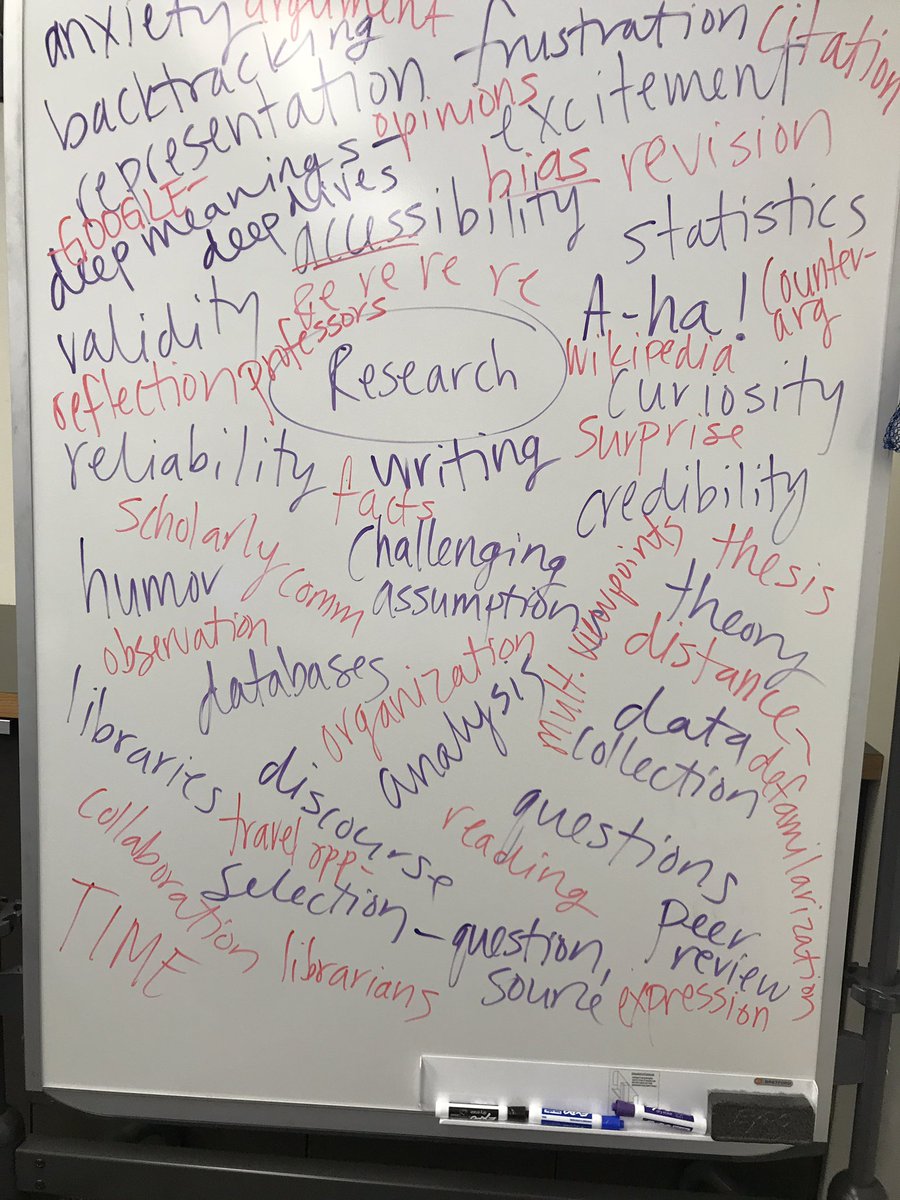 anxiety
argument
backtracking
frustration
citation
representation
opinions
excitement
-GOOGLE-
deep meanings -
deep dives
bias
revision
accessibility
statistics
validity
re re re re
A-ha!
Counter-
arg
reflection
professors
Research
wikipedia
curiosity
reliability
writing
surprise
facts
credibility
scholarly
comm
challenging
assumption
multi. viewpoints
thesis
humor
theory
observation
distance-
defamilarization
databases
organization
analysis
data
collection
libraries
discourse
travel opp.
questions
reading
collaboration
selection - question,
source
peer
review
TIME
librarians
expression